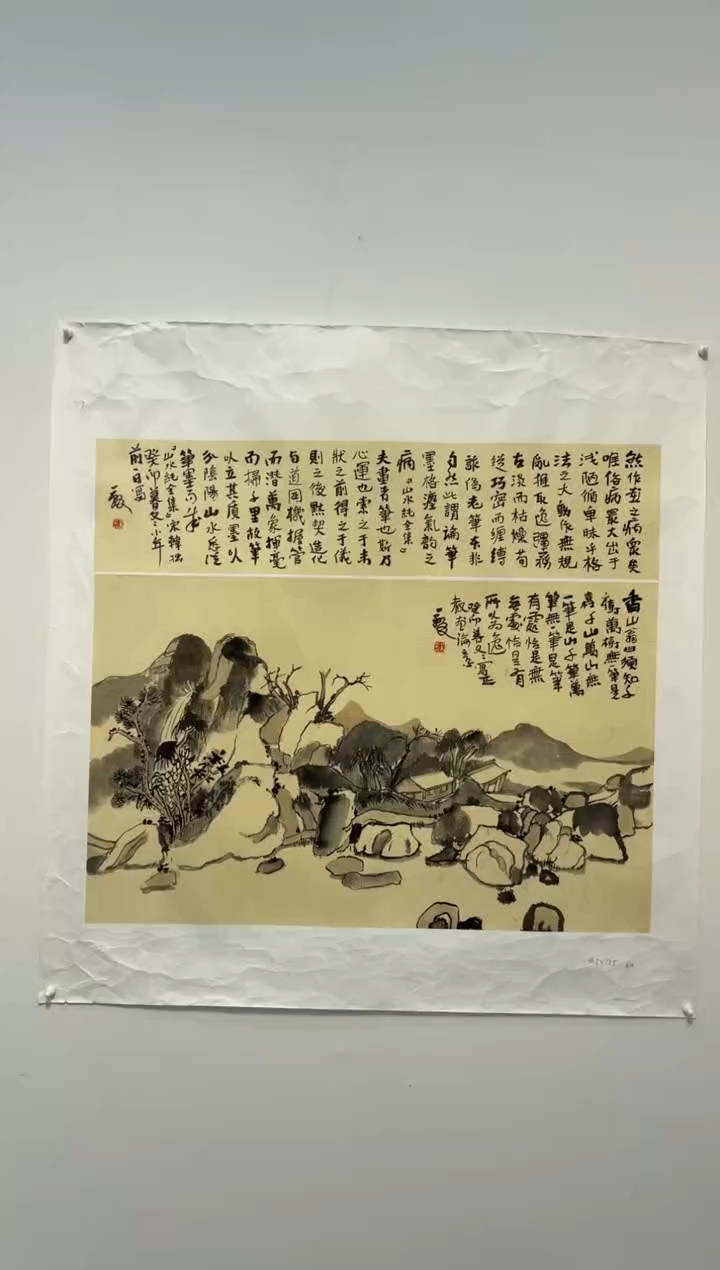 然作畫之病衆矣
唯俗病最大出于
浅陋循卑昧乎格
法之大動作無規
亂推取逸彊務
古淡而枯燥苟
從巧密而纏縛
詐偽老筆本非
自然此謂論筆
墨格灋氣韵之
病『山水純全集』
夫畫者筆也斯乃
心運也索之于未
狀之前得之于儀
則之後默契造化
与道同機握管
而潜萬象揮毫
而掃千里故筆
以立其质墨以
分陰陽山水悉從
筆墨而成
『山水純全集』宋韓拙
癸卯暮冬小年
前一日寫
香山翁曰須知千
樹萬樹無一筆是
樹千山萬山無
一筆是山千筆萬
筆無一筆是筆
有處恰是無
無處恰是有
所以為逸
癸卯暮冬寫並